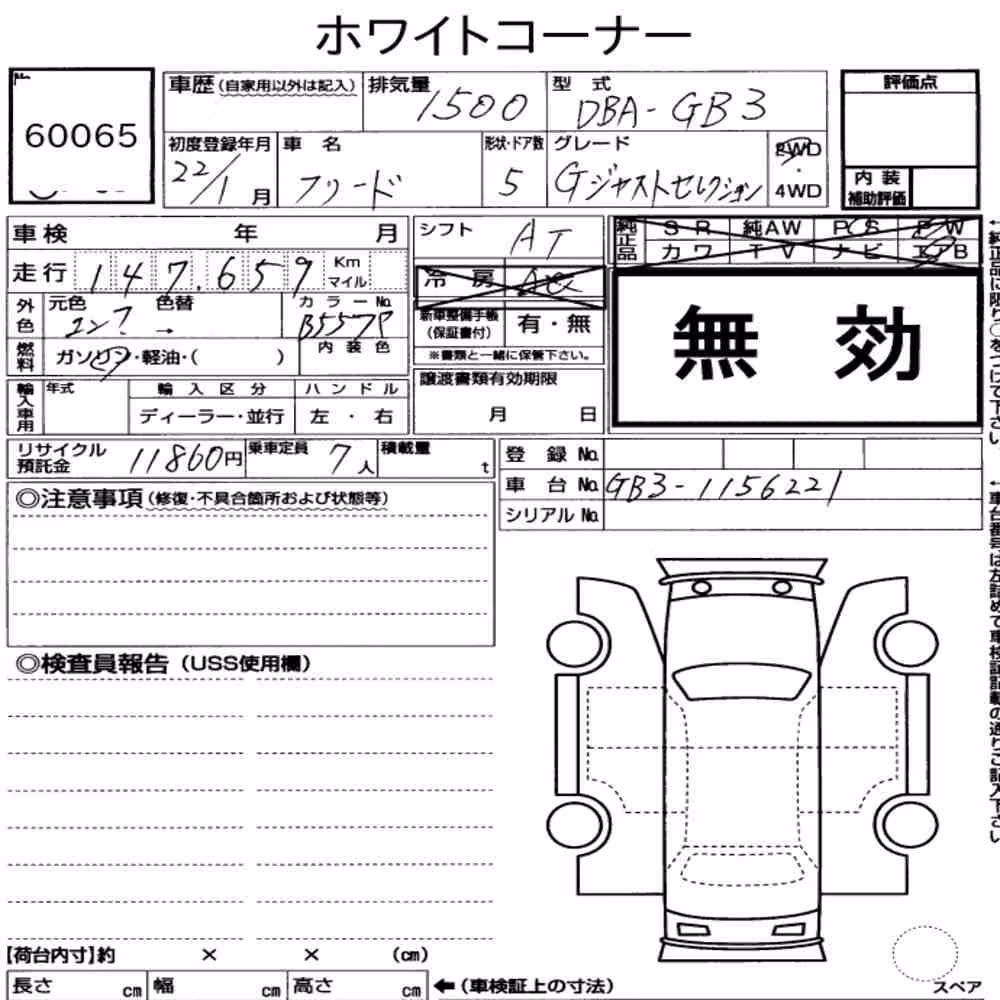 ホワイトコーナー
No.
60065
車歴 (自家用以外は記入)
排気量 1500
型式 DBA-GB3
評価点
初度登録年月 22/1月
車名 フリード
形状・ドア数 5
グレード Gジャストセレクション
2WD
・
4WD
内装
補助評価
車検 年 月
シフト AT
純正品 SR 純AW PS PW
カワ TV ナビ エアB
走行 147.659 Km マイル
冷房 AC
外色 元色 コン? 色替 → カラーNo. B557P
新車整備手帳
(保証書付) 有・無
※書類と一緒に保管下さい。
無効
燃料 ガソリン・軽油・( )
内装色
譲渡書類有効期限
月 日
輸入車用 年式 輸入区分 ハンドル
ディーラー・並行 左・右
リサイクル
預託金 11860円
乗車定員 7人
積載量 t
登録No.
車台No. GB3-1156221
シリアルNo.
◎注意事項 (修復・不具合箇所および状態等)
◎検査員報告 (USS使用欄)
←純正品に限り○をつけて下さい。
←車台番号は左詰めで車検証記載の通りご記入下さい。
【荷台内寸】約 × × (cm)
長さ cm 幅 cm 高さ cm ←(車検証上の寸法)
スペア